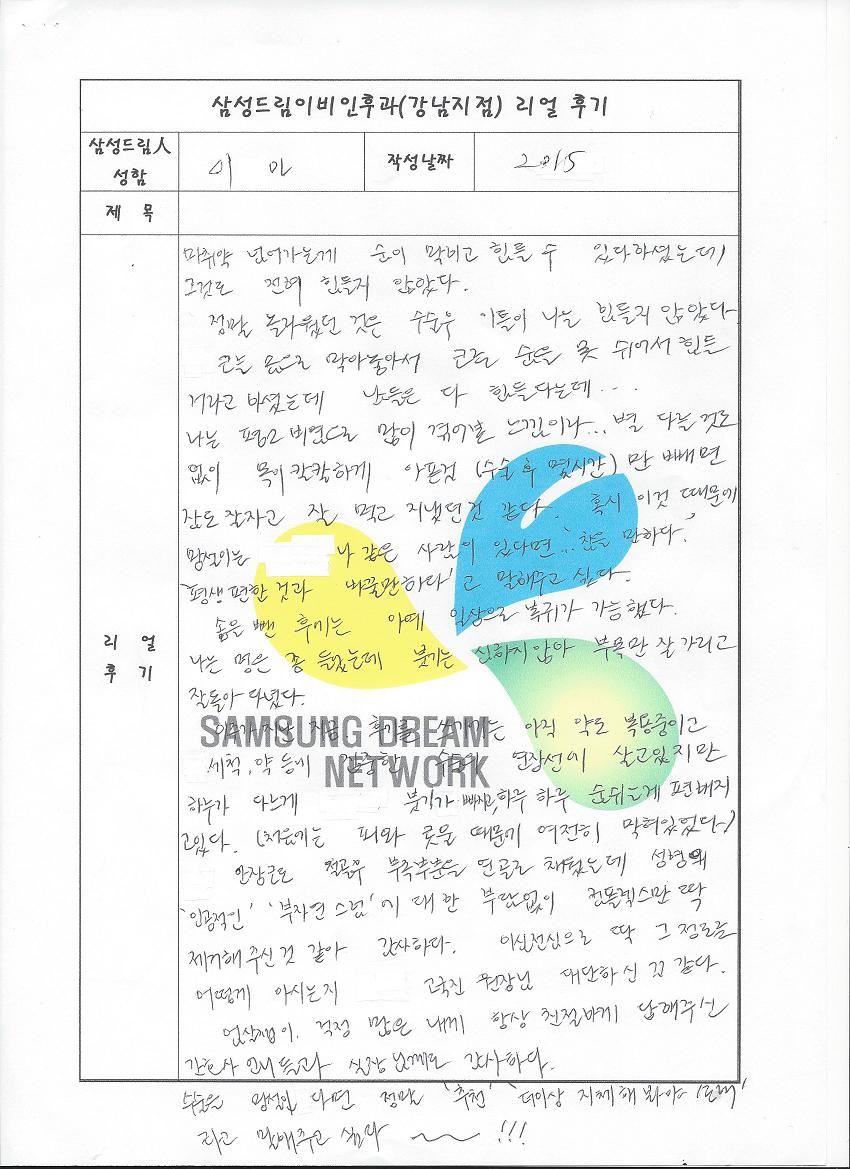 삼성드림이비인후과(강남지점) 리얼 후기
삼성드림人
성함
이
작성날짜
2015
제 목
리 얼
후 기
마취약 넘어가는게 숨이 막히고 힘들 수 있다하셨는데
그것도 전혀 힘들지 않았다.
정말 놀라웠던 것은 수술후 이틀이 나는 힘들지 않았다
코를 솜으로 막아놓아서 코로 숨을 못 쉬어서 힘들
거라고 하셨는데 남들은 다 힘들다는데...
나는 평소 비염으로 많이 겪어본 느낌이라... 별 다를 것도
없이 목이 칼칼하게 아픈것 (수술 후 몇시간) 만 빼면
잠도 잘자고 잘 먹고 지냈던것 같다. 혹시 이것 때문에
망설이는 나 같은 사람이 있다면 '참을 만하다.'
'평생 편한 것과 바꿀만하다' 고 말해주고 싶다.
솜을 뺀 후에는 아예 일상으로 복귀가 가능했다.
나는 멍은 좀 들었는데 붓기는 심하지 않아 부목만 잘 가리고
잘돌아 다녔다.
지난 지금. 후기를 쓰기에는 아직 약도 복용중이고
SAMSUNG DREAM
NETWORK
세척, 약 등에 수술의 연장선에 살고있지만
하루가 다르게 붓기가 빠지고, 하루 하루 숨쉬는게 편해지
고있다. (처음에는 피와 콧물 때문에 여전히 막혀있었다)
절골후 부족부분을 연골로 채웠는데 성형의
'인공적인' '부자연스럼'에 대한 부담없이 컴플렉스만 딱
제거해 주신것 같아 감사하다. 이심전심으로 딱 그 정도를
어떻게 아시는지 고국진 원장님 대단하신 것 같다.
걱정 많은 내게 항상 친절하게 답해주신
간호사 언니들과 실장님께도 감사하다.
수술을 망설인다면 정말 '추천' '더이상 지체해 봐야
라고 말해주고 싶다 ~ !!!